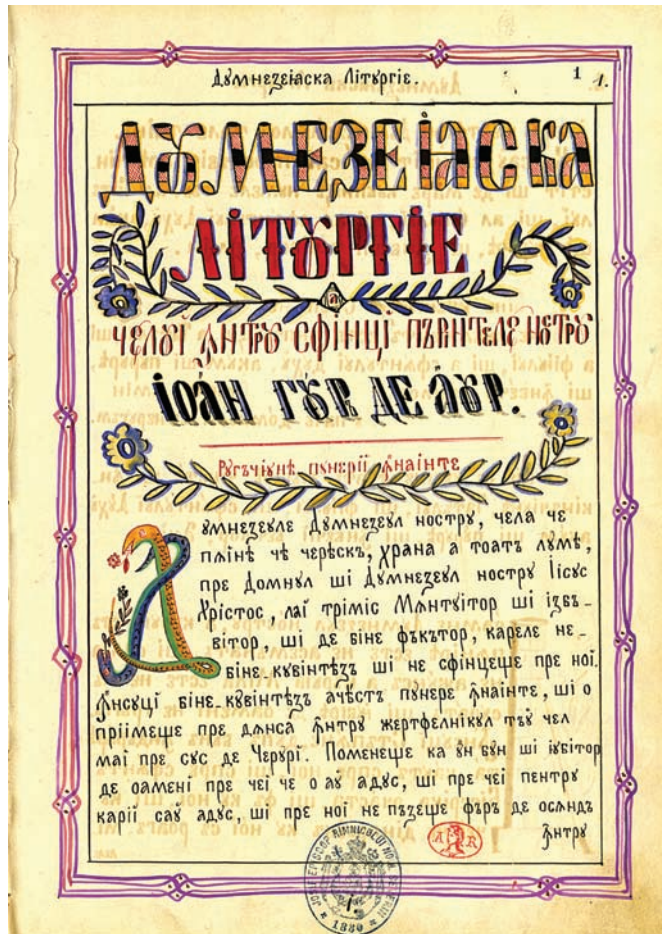 Дꙋмнезеіаска Літꙋргіе.
1 1.
ДꙋМНЕЗЕІАСКА
ЛІТꙊРГІЕ
а
ЧЕЛꙊЇ ꙞНТРꙊ СФІНЦІ ПЪРИНТЕЛЕ НОСТРꙊ
ІОАН ГꙊРЪ ДЕ АꙊР.
Рꙋгъчіꙋнѣ пꙋнерїї ꙟнаінте
Дꙋмнезеꙋле Дꙋмнезеꙋл нострꙋ, чела че
пѫінѣ чѣ черѣскъ, храна а тоатъ лꙋмѣ,
пре Домнꙋл ші Дꙋмнезеꙋл нострꙋ Іісꙋс
Хрістос, лаї тріміс Мѫнтꙋітор ші ізбъ_
вітор, ші де біне фъкътор, кареле не_
біне_кꙋвінтѣзъ ші не сфінцеще пре ної.
Ꙟнсꙋці біне_кꙋвінтѣзъ ачѣстъ пꙋнере ꙟнаінте, ші о
пріімеще пре дѫнса ꙟнтрꙋ жертфелнікꙋл тъꙋ чел
маі пре сꙋс де Черꙋрї. Поменеще ка ꙋн бꙋн ші іꙋбітор
де оамені пре чеі че о аꙋ адꙋс, ші пре чеі пентрꙋ
карії саꙋ адꙋс, ші пре ної не пъзеще фъръ де осѫндъ
ꙟнтрꙋ
A R
1880